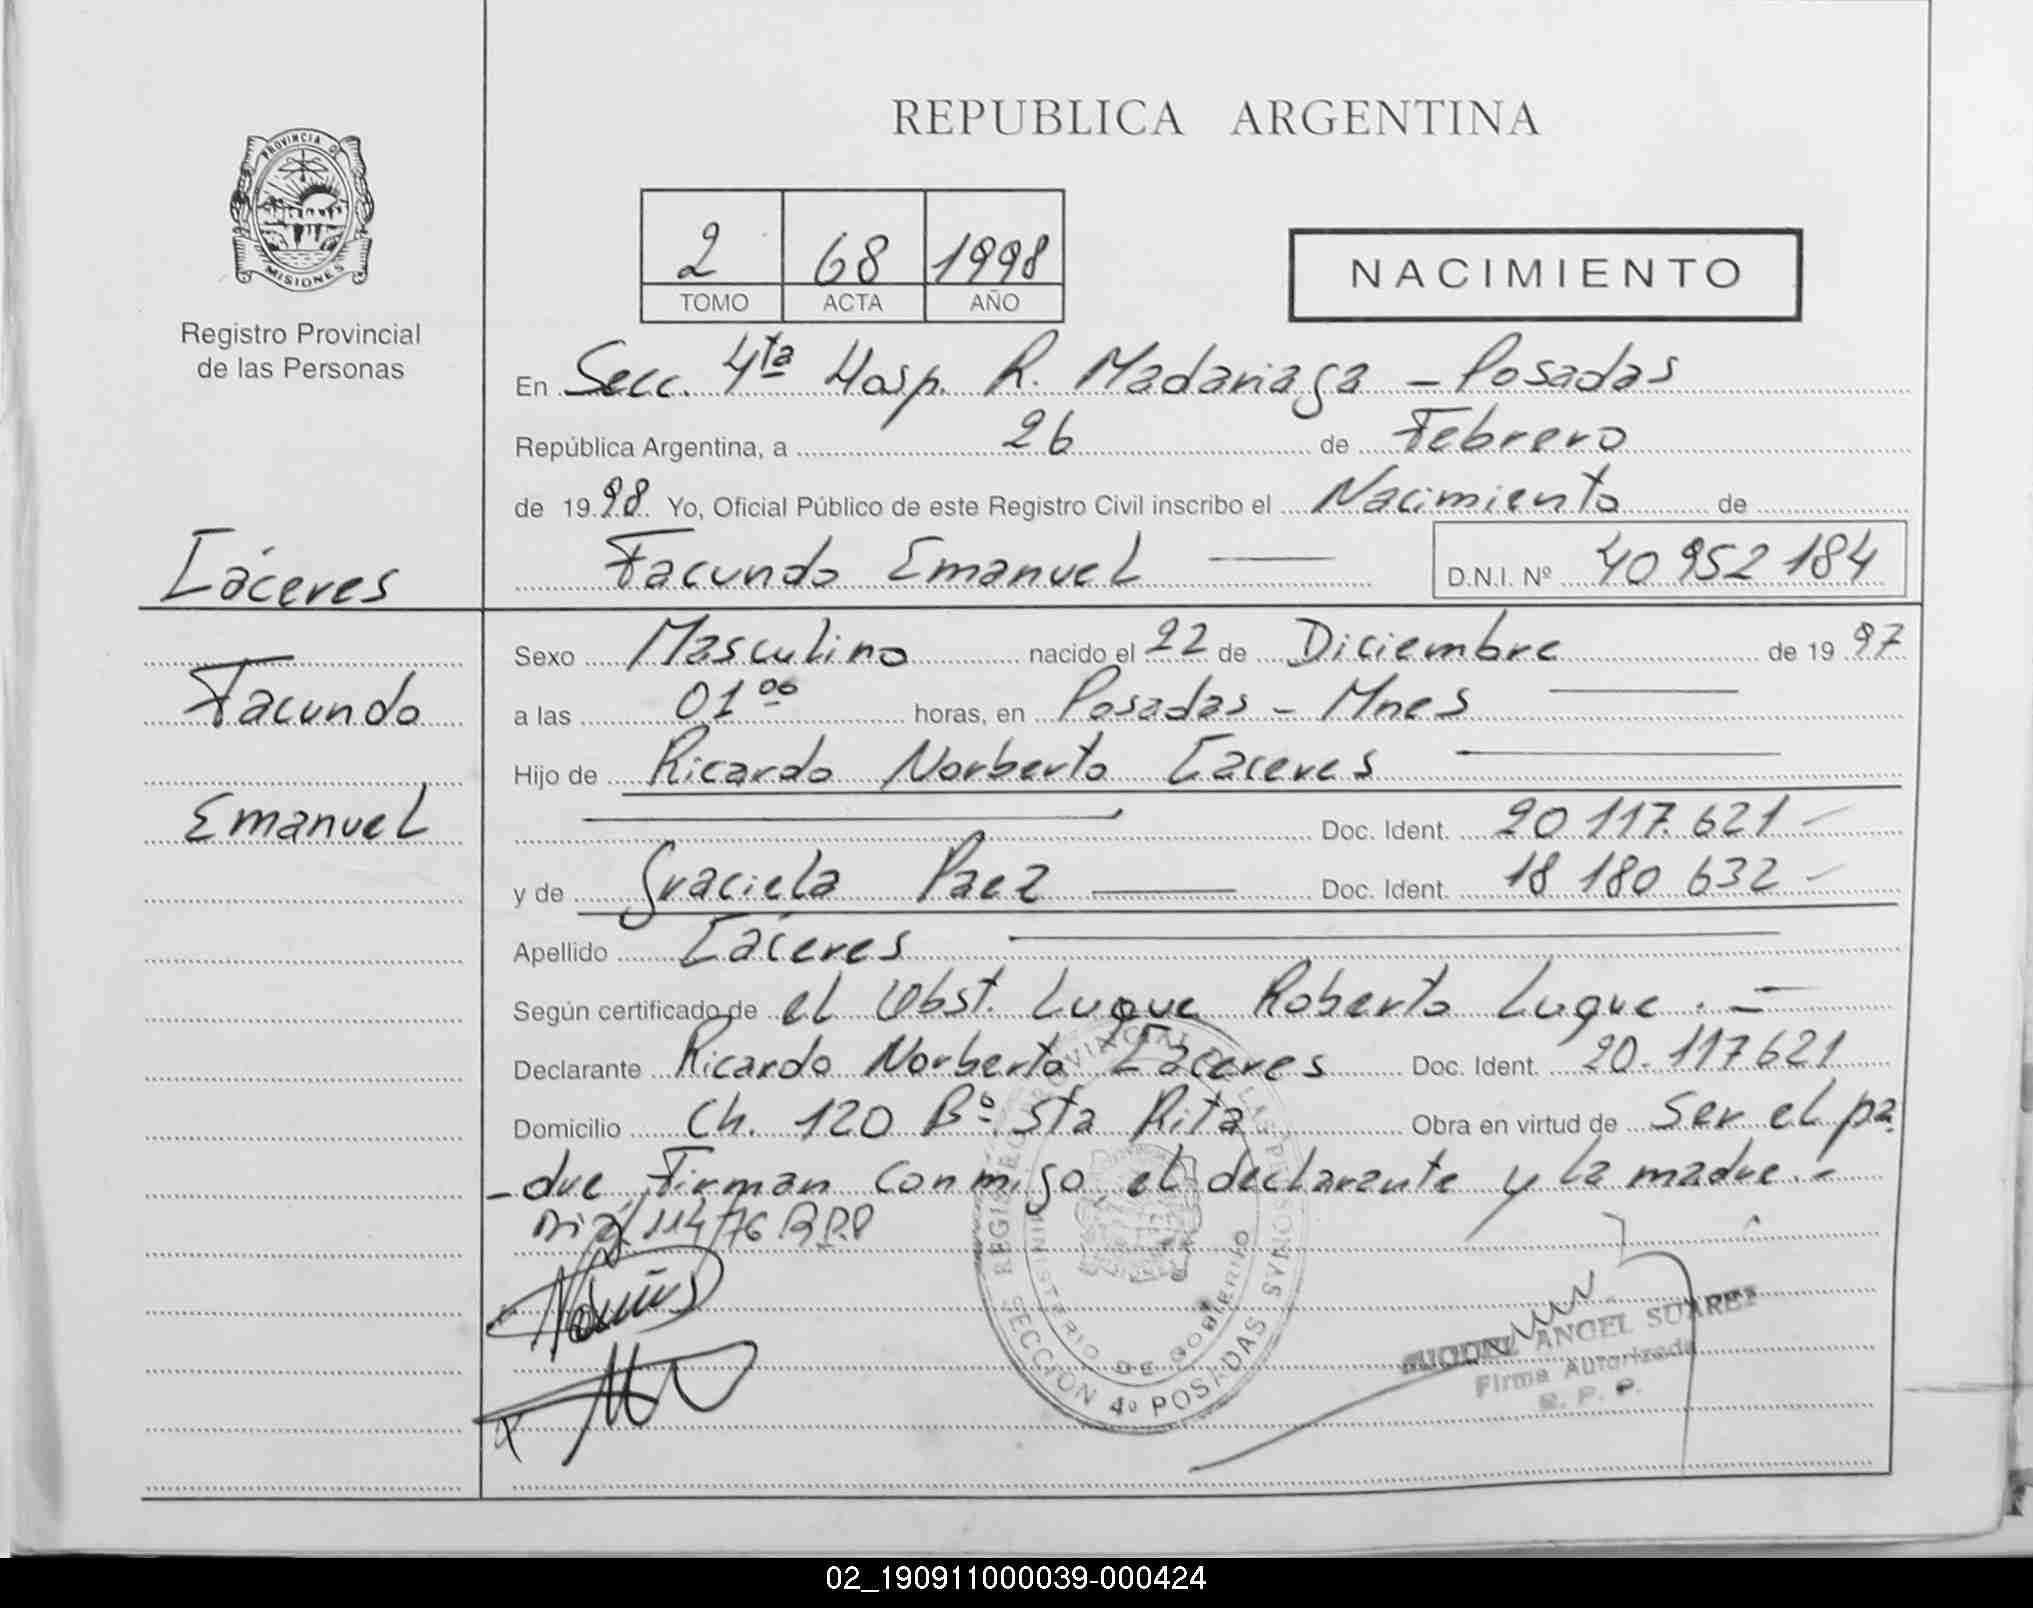 REPUBLICA ARGENTINA
PROVINCIA DE
MISIONES
Registro Provincial
de las Personas
2 68 1998
TOMO ACTA AÑO
NACIMIENTO
En Secc. 4ta Hosp. R. Madariaga - Posadas
República Argentina, a 26 de Febrero
de 1998. Yo, Oficial Público de este Registro Civil inscribo el Nacimiento de
Facundo Emanuel D.N.I. Nº 40 952 184
Cáceres
Facundo
Emanuel
Sexo Masculino nacido el 22 de Diciembre de 1997
a las 01 00 horas, en Posadas - Mnes
Hijo de Ricardo Norberto Caceres
Doc. Ident. 20 117.621 -
y de Graciela Paez Doc. Ident. 18 180 632 -
Apellido Cáceres
Según certificado de el Obst. Luque Roberto Luque . -
Declarante Ricardo Norberto Cáceres Doc. Ident. 20.117621
Domicilio Ch. 120 Bº Sta Rita Obra en virtud de Ser el pa
-dre Firman conmigo, el declarante y la madre.-
114/76 R.P.P
REGISTRO PROVINCIAL DE LAS PERSONAS
MINISTERIO DE GOBIERNO
SECCION 4º POSADAS
ANGEL SUAREZ
Firma Autorizada
R. P. P.
02_190911000039-000424